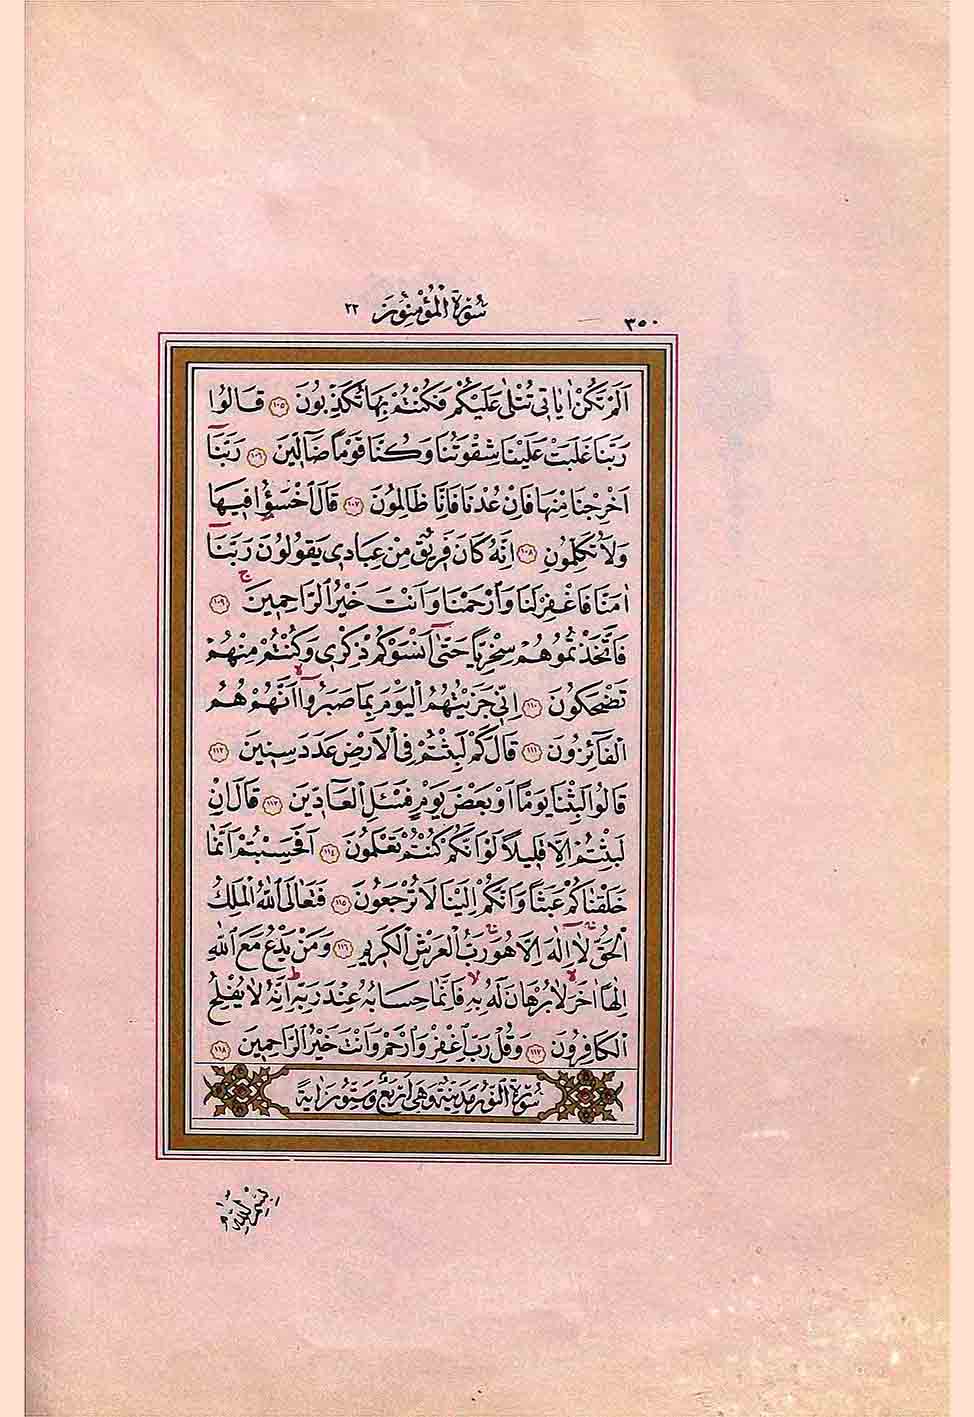 ٣٥٠ سُورَةُ الْمُؤْمِنُونَ ٢٣
اَلَمْ تَكُنْ اٰيَاتٖى تُتْلٰى عَلَيْكُمْ فَكُنْتُمْ بِهَا تُكَذِّبُونَ ١٠٥ قَالُوا
رَبَّنَا غَلَبَتْ عَلَيْنَا شِقْوَتُنَا وَكُنَّا قَوْمًا ضَٓالّٖينَ ١٠٦ رَبَّنَٓا
اَخْرِجْنَا مِنْهَا فَاِنْ عُدْنَا فَاِنَّا ظَالِمُونَ ١٠٧ قَالَ اخْسَؤُ۫ا فٖيهَا
وَلَا تُكَلِّمُونِ ١٠٨ اِنَّهُ كَانَ فَرٖيقٌ مِنْ عِبَادٖى يَقُولُونَ رَبَّنَٓا
اٰمَنَّا فَاغْفِرْ لَنَا وَارْحَمْنَا وَاَنْتَ خَيْرُ الرَّاحِمٖينَ ج ١٠٩
فَاتَّخَذْتُمُوهُمْ سِخْرِيًّا حَتّٰٓى اَنْسَوْكُمْ ذِكْرٖى وَكُنْتُمْ مِنْهُمْ
تَضْحَكُونَ ١١٠ اِنّٖى جَزَيْتُهُمُ الْيَوْمَ بِمَا صَبَرُٓوا لا اَنَّهُمْ هُمُ
الْفَٓائِزُونَ ١١١ قَالَ كَمْ لَبِثْتُمْ فِى الْاَرْضِ عَدَدَ سِنٖينَ ١١٢
قَالُوا لَبِثْنَا يَوْمًا اَوْ بَعْضَ يَوْمٍ فَسْـَٔلِ الْعَٓادّٖينَ ١١٣ قَالَ اِنْ
لَبِثْتُمْ اِلَّا قَلٖيلًا لَوْ اَنَّكُمْ كُنْتُمْ تَعْلَمُونَ ١١٤ اَفَحَسِبْتُمْ اَنَّمَا
خَلَقْنَاكُمْ عَبَثًا وَاَنَّكُمْ اِلَيْنَا لَا تُرْجَعُونَ ١١٥ فَتَعَالَى اللّٰهُ الْمَلِكُ
الْحَقُّ لَٓا اِلٰهَ اِلَّا هُوَ رَبُّ الْعَرْشِ الْكَرٖيمِ ١١٦ وَمَنْ يَدْعُ مَعَ اللّٰهِ
اِلٰهًا اٰخَرَ لا لَا بُرْهَانَ لَهُ بِهٖ لا فَاِنَّمَا حِسَابُهُ عِنْدَ رَبِّهٖ ط اِنَّهُ لَا يُفْلِحُ
الْكَافِرُونَ ١١٧ وَقُلْ رَبِّ اغْفِرْ وَارْحَمْ وَاَنْتَ خَيْرُ الرَّاحِمٖينَ ١١٨
سُورَةُ النُّورِ مَدَنِيَّةٌ وَهِىَ اَرْبَعٌ وَسِتُّونَ اٰيَةً
بِسْمِ اللّٰهِ